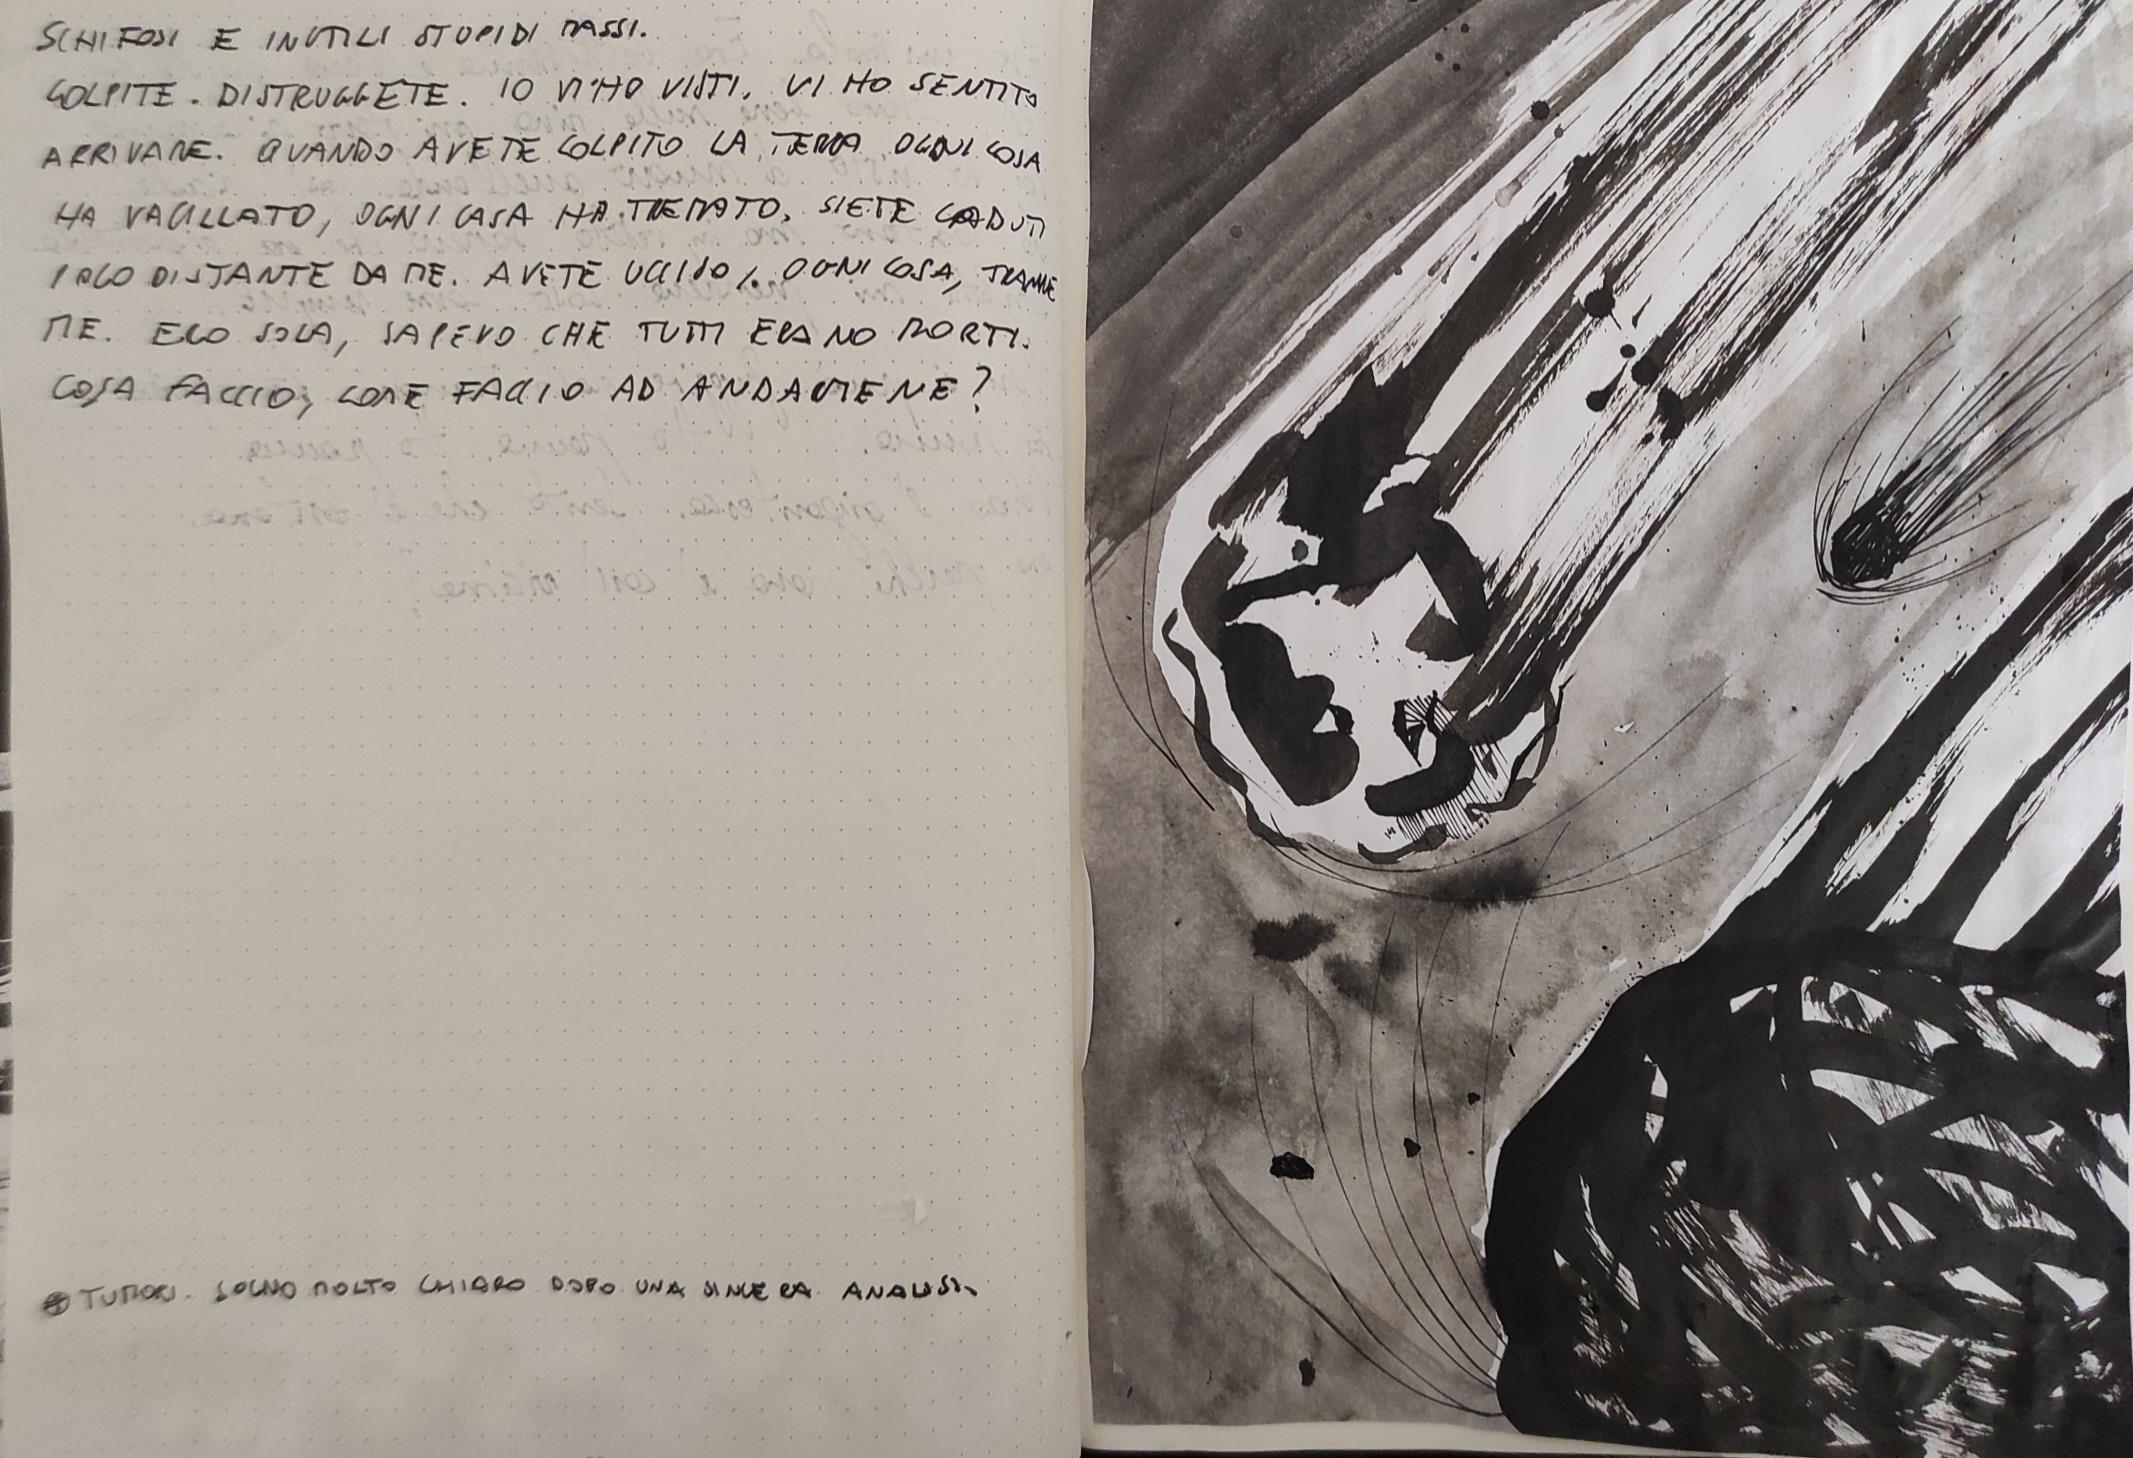 SCHIFOSI E INUTILI STUPIDI MASSI.
COLPITE. DISTRUGGETE. IO VI HO VISTI, VI HO SENTITO
ARRIVARE. QUANDO AVETE COLPITO LA TERRA OGNI COSA
HA VACILLATO, OGNI CASA HA TREMATO, SIETE CADUTI
POCO DISTANTE DA ME. AVETE UCCISO, OGNI COSA, TRANNE
ME. ERO SOLA, SAPEVO CHE TUTTI ERANO MORTI.
COSA FACCIO, COME FACCIO AD ANDARMENE?
TUMORI. SOGNO MOLTO CHIARO DOPO UNA SINCERA ANALISI.